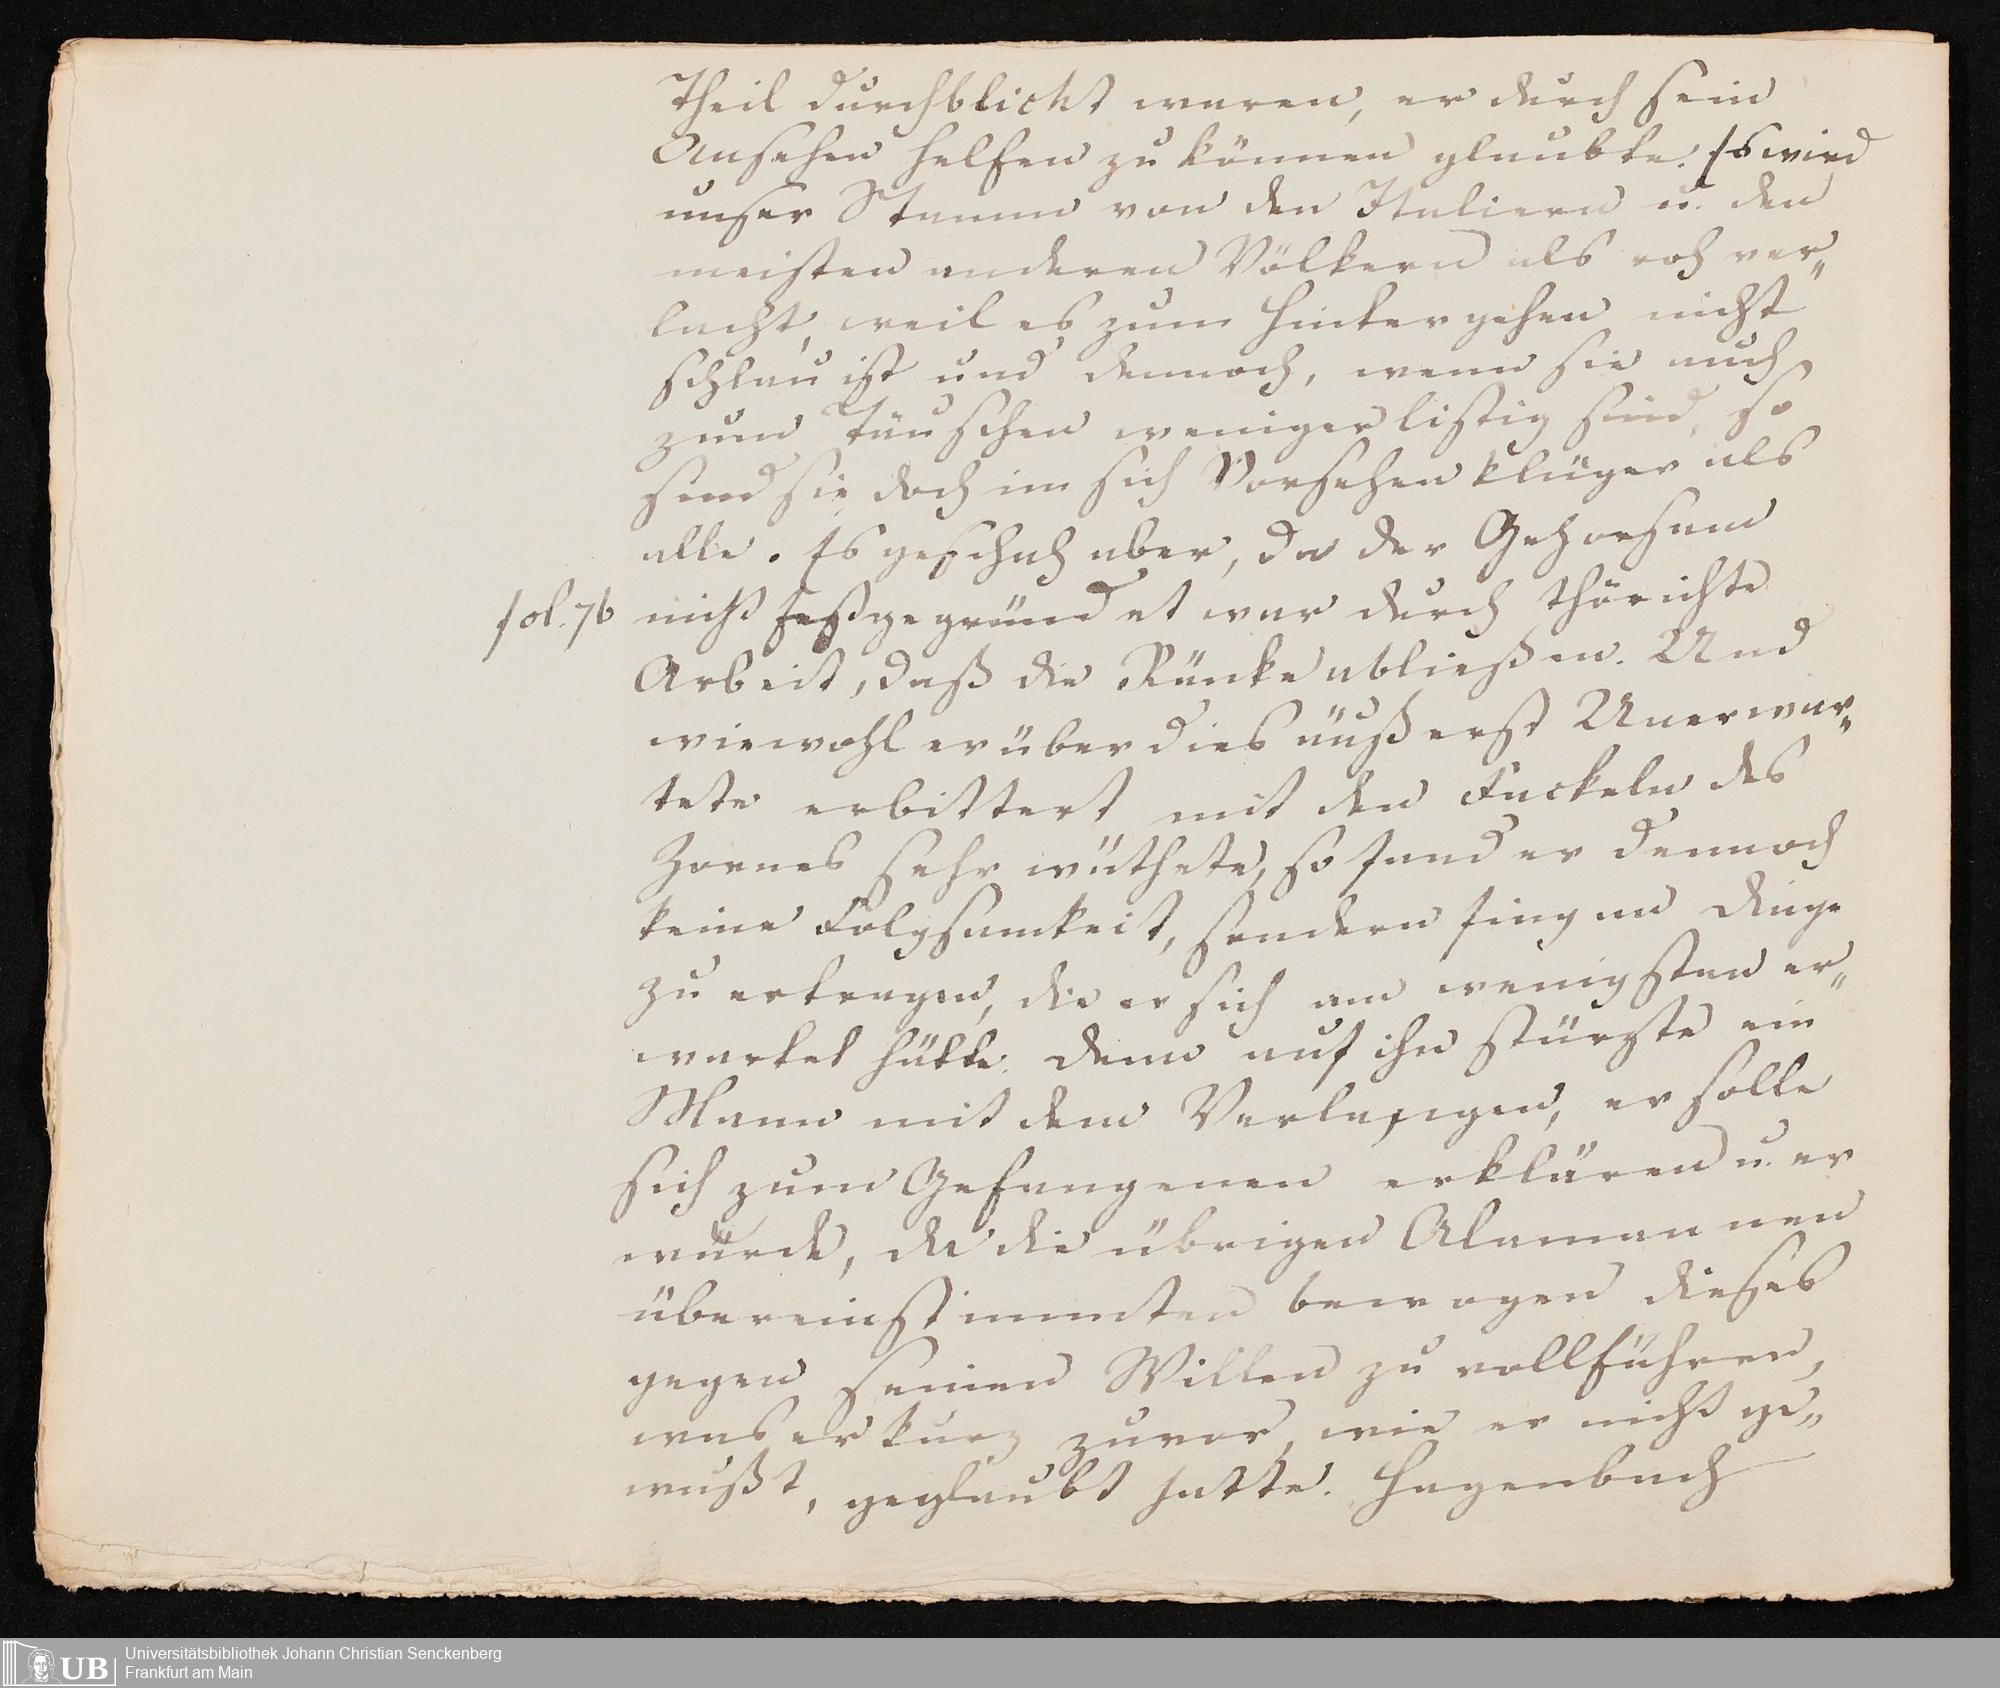 Theil durchblickt waren, er durch sein
Ansehen helfen zu können glaubte. Es wird
unser Stamm von den Italiern u. den
meisten anderen Völkern als roh ver„
lacht, weil es zum Hintergehen nicht
schlau ist und dennoch, wenn sie auch
zum Täuschen weniger listig sind, so
sind sie doch im sich Vorsehen klüger als
alle. Es geschah aber, da der Gehorsam
fol. 76 nicht festgegründet war durch thörichte
Arbeit, daß die Ränke abließen. Und
wiewohl er über dies äußerst Unerwar„
tete erbittert mit den Fackeln des
Zornes sehr wüthete, so fand er dennoch
keine Folgsamkeit, sondern fing an Dinge
zu ertragen, die er sich am wenigsten er„
wartet hätte. Denn auf ihn stürzte ein
Mann mit dem Verlangen, er solle
sich zum Gefangenen erklären u. er
würde, da die übrigen Alamannen
übereinstimmten bewogen dieses
gegen seinen Willen zu vollführen,
was er kurz zuvor, wie er nicht ge„
wußt, geglaubt hatte. Hagenbach
Universitätsbibliothek Johann Christian Senckenberg
Frankfurt am Main
UB